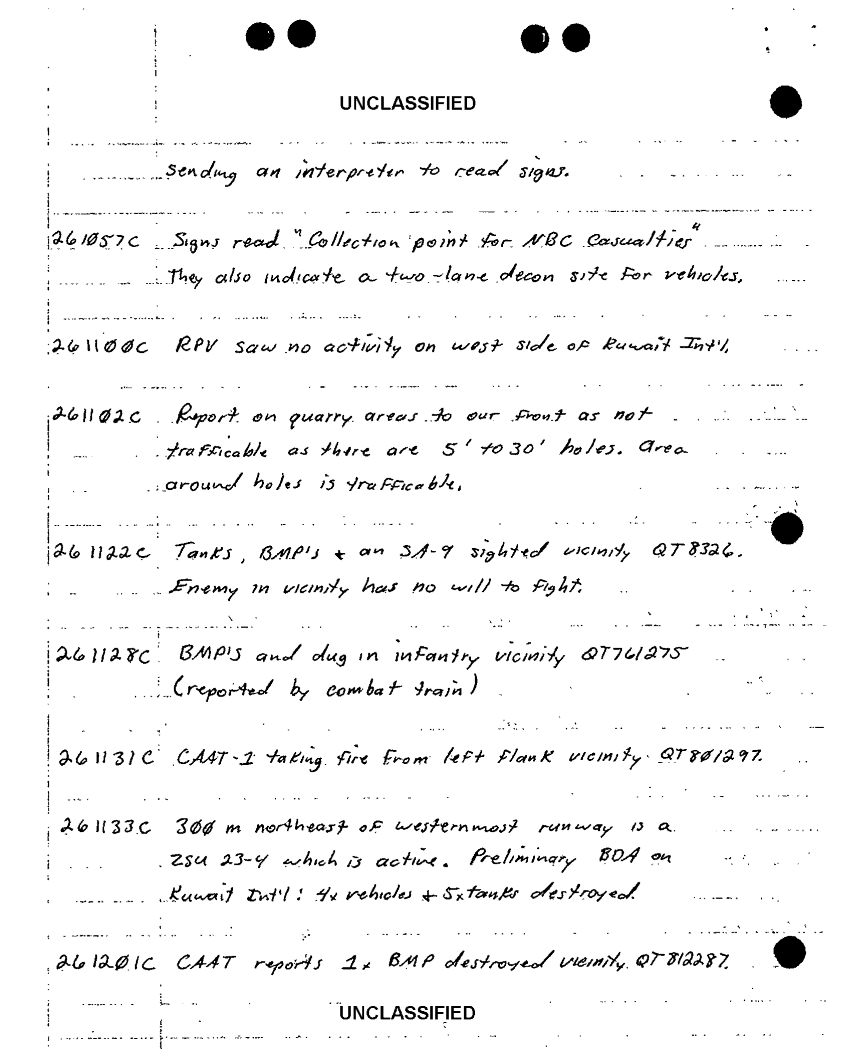 UNCLASSIFIED
sending an interpreter to read signs.
261057C Signs read "Collection point for NBC Casualties"
They also indicate a two-lane decon site for vehicles.
261100C RPV saw no activity on west side of Kuwait Int'l.
261102C Report on quarry areas to our front as not
trafficable as there are 5' to 30' holes. Area
around holes is trafficable.
261122C Tanks, BMP's + an SA-9 sighted vicinity QT8326.
Enemy in vicinity has no will to fight.
261128C BMP'S and dug in infantry vicinity QT761275
(reported by combat train)
261131C CAAT-1 taking fire from left flank vicinity QT801297.
261133C 300 m northeast of westernmost runway is a
ZSU 23-4 which is active. Preliminary BDA on
Kuwait Int'l: 4x vehicles + 5x tanks destroyed.
261201C CAAT reports 1x BMP destroyed vicinity QT812287.
UNCLASSIFIED